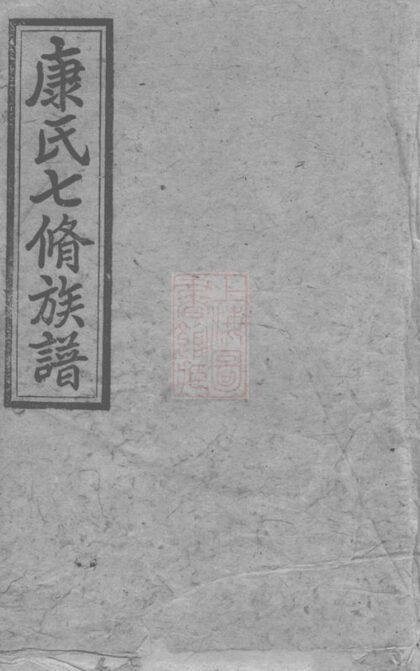 康氏七脩族譜
上海圖
書館藏